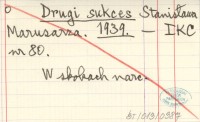 Drugi sukces Stanisława
Marusarza. 1939. — IKC
nr 80.
W skokach narc.